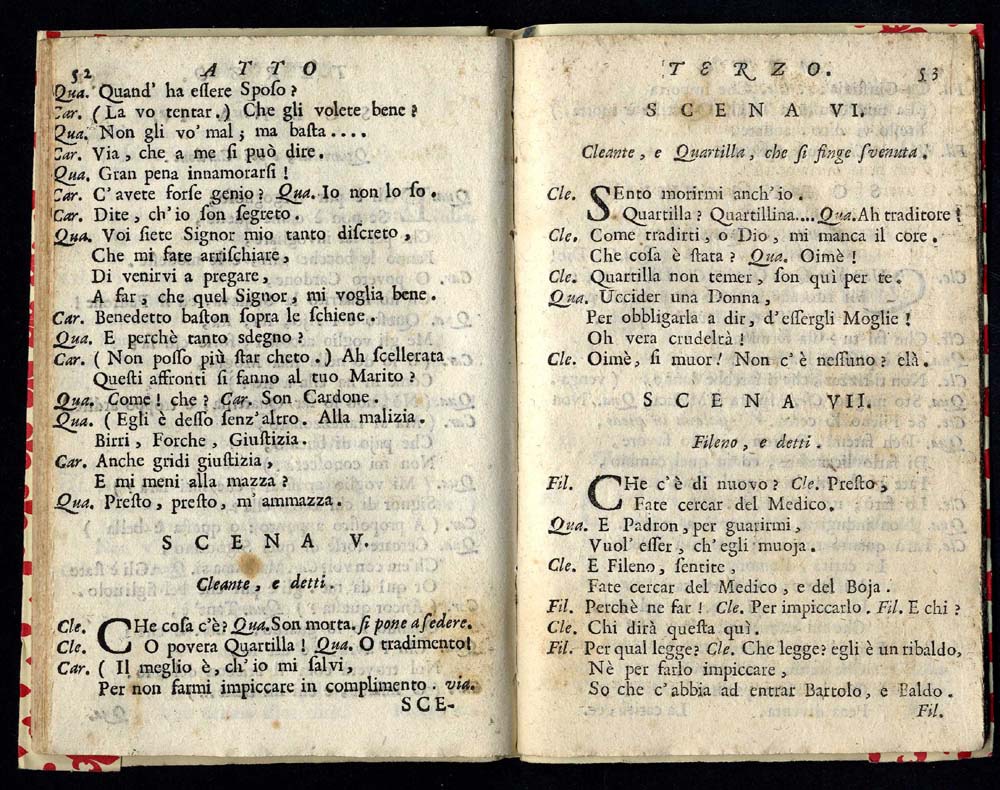 52 ATTO
Qua. Quand' ha essere Sposo?
Car. ( La vo tentar. ) Che gli volete bene?
Qua. Non gli vo' mal; ma basta ....
Car. Via, che a me si può dire.
Qua. Gran pena innamorarsi!
Car. C'avete forse genio? Qua. Io non lo so.
Car. Dite, ch'io son segreto.
Qua. Voi siete Signor mio tanto discreto,
Che mi fate arrischiare,
Di venirvi a pregare,
A far, che quel Signor, mi voglia bene.
Car. Benedetto baston sopra le schiene.
Qua. E perchè tanto sdegno?
Car. ( Non posso più star cheto. ) Ah scellerata
Questi affronti si fanno al tuo Marito?
Qua. Come! che? Car. Son Cardone.
Qua. ( Egli è desso senz'altro. Alla malizia.
Birri, Forche, Giustizia.
Car. Anche gridi giustizia,
E mi meni alla mazza?
Qua. Presto, presto, m' ammazza.
SCENA V.
Cleante, e detti.
Cle. CHe cosa c'è? Qua. Son morta. si pone a sedere.
Cle. O povera Quartilla! Qua. O tradimento!
Car. ( Il meglio è, ch'io mi salvi,
Per non farmi impiccare in complimento. via.
SCE-
TERZO. 53
SCENA VI.
Cleante, e Quartilla, che si finge svenuta.
Cle. SEnto morirmi anch'io.
Quartilla? Quartillina.... Qua. Ah traditore!
Cle. Come tradirti, o Dio, mi manca il core.
Che cosa è stata? Qua. Oimè!
Cle. Quartilla non temer, son quì per te.
Qua. Uccider una Donna,
Per obbligarla a dir, d'essergli Moglie!
Oh vera crudeltà!
Cle. Oimè, si muor! Non c'è nessuno? elà.
SCENA VII.
Fileno, e detti.
Fil. CHe c'è di nuovo? Cle. Presto,
Fate cercar del Medico.
Qua. E Padron, per guarirmi,
Vuol' esser, ch'egli muoja.
Cle. E Fileno, sentite,
Fate cercar del Medico, e del Boja.
Fil. Perchè ne far! Cle. Per impiccarlo. Fil. E chi?
Cle. Chi dirà questa quì.
Fil. Per qual legge? Cle. Che legge? egli è un ribaldo,
Nè per farlo impiccare,
So che c'abbia ad entrar Bartolo, e Baldo.
Fil.